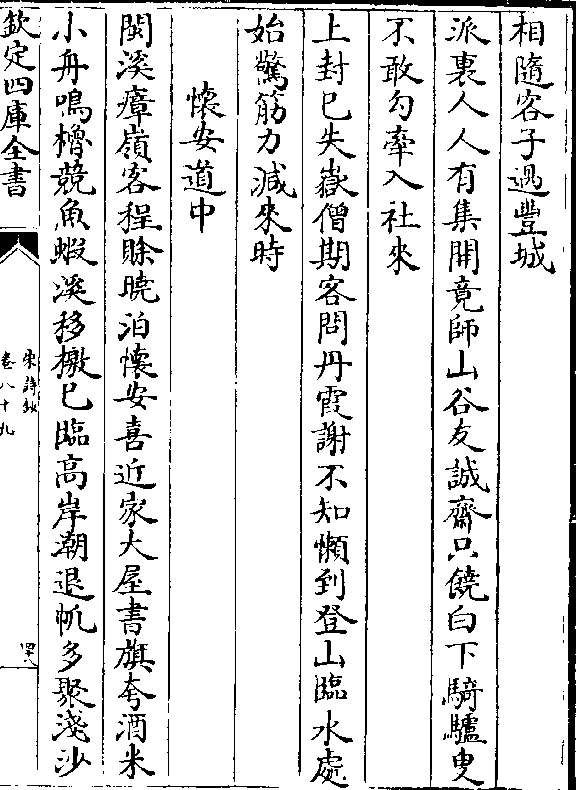 相隨客子過豐城
派裏人人有集開竟師山谷友誠齋只饒白下騎驢叟
不敢勾牽入社來
上封已失嶽僧期客問丹霞謝不知懶到登山臨水處
始驚筋力減來時
懷安道中
閩溪瘴嶺客程賒曉泊懷安喜近家大屋書旗夸酒米
小舟鳴櫓競魚蝦溪移檄已臨高岸潮退帆多聚淺沙
欽定四庫全書
宋詩鈔
卷八十九